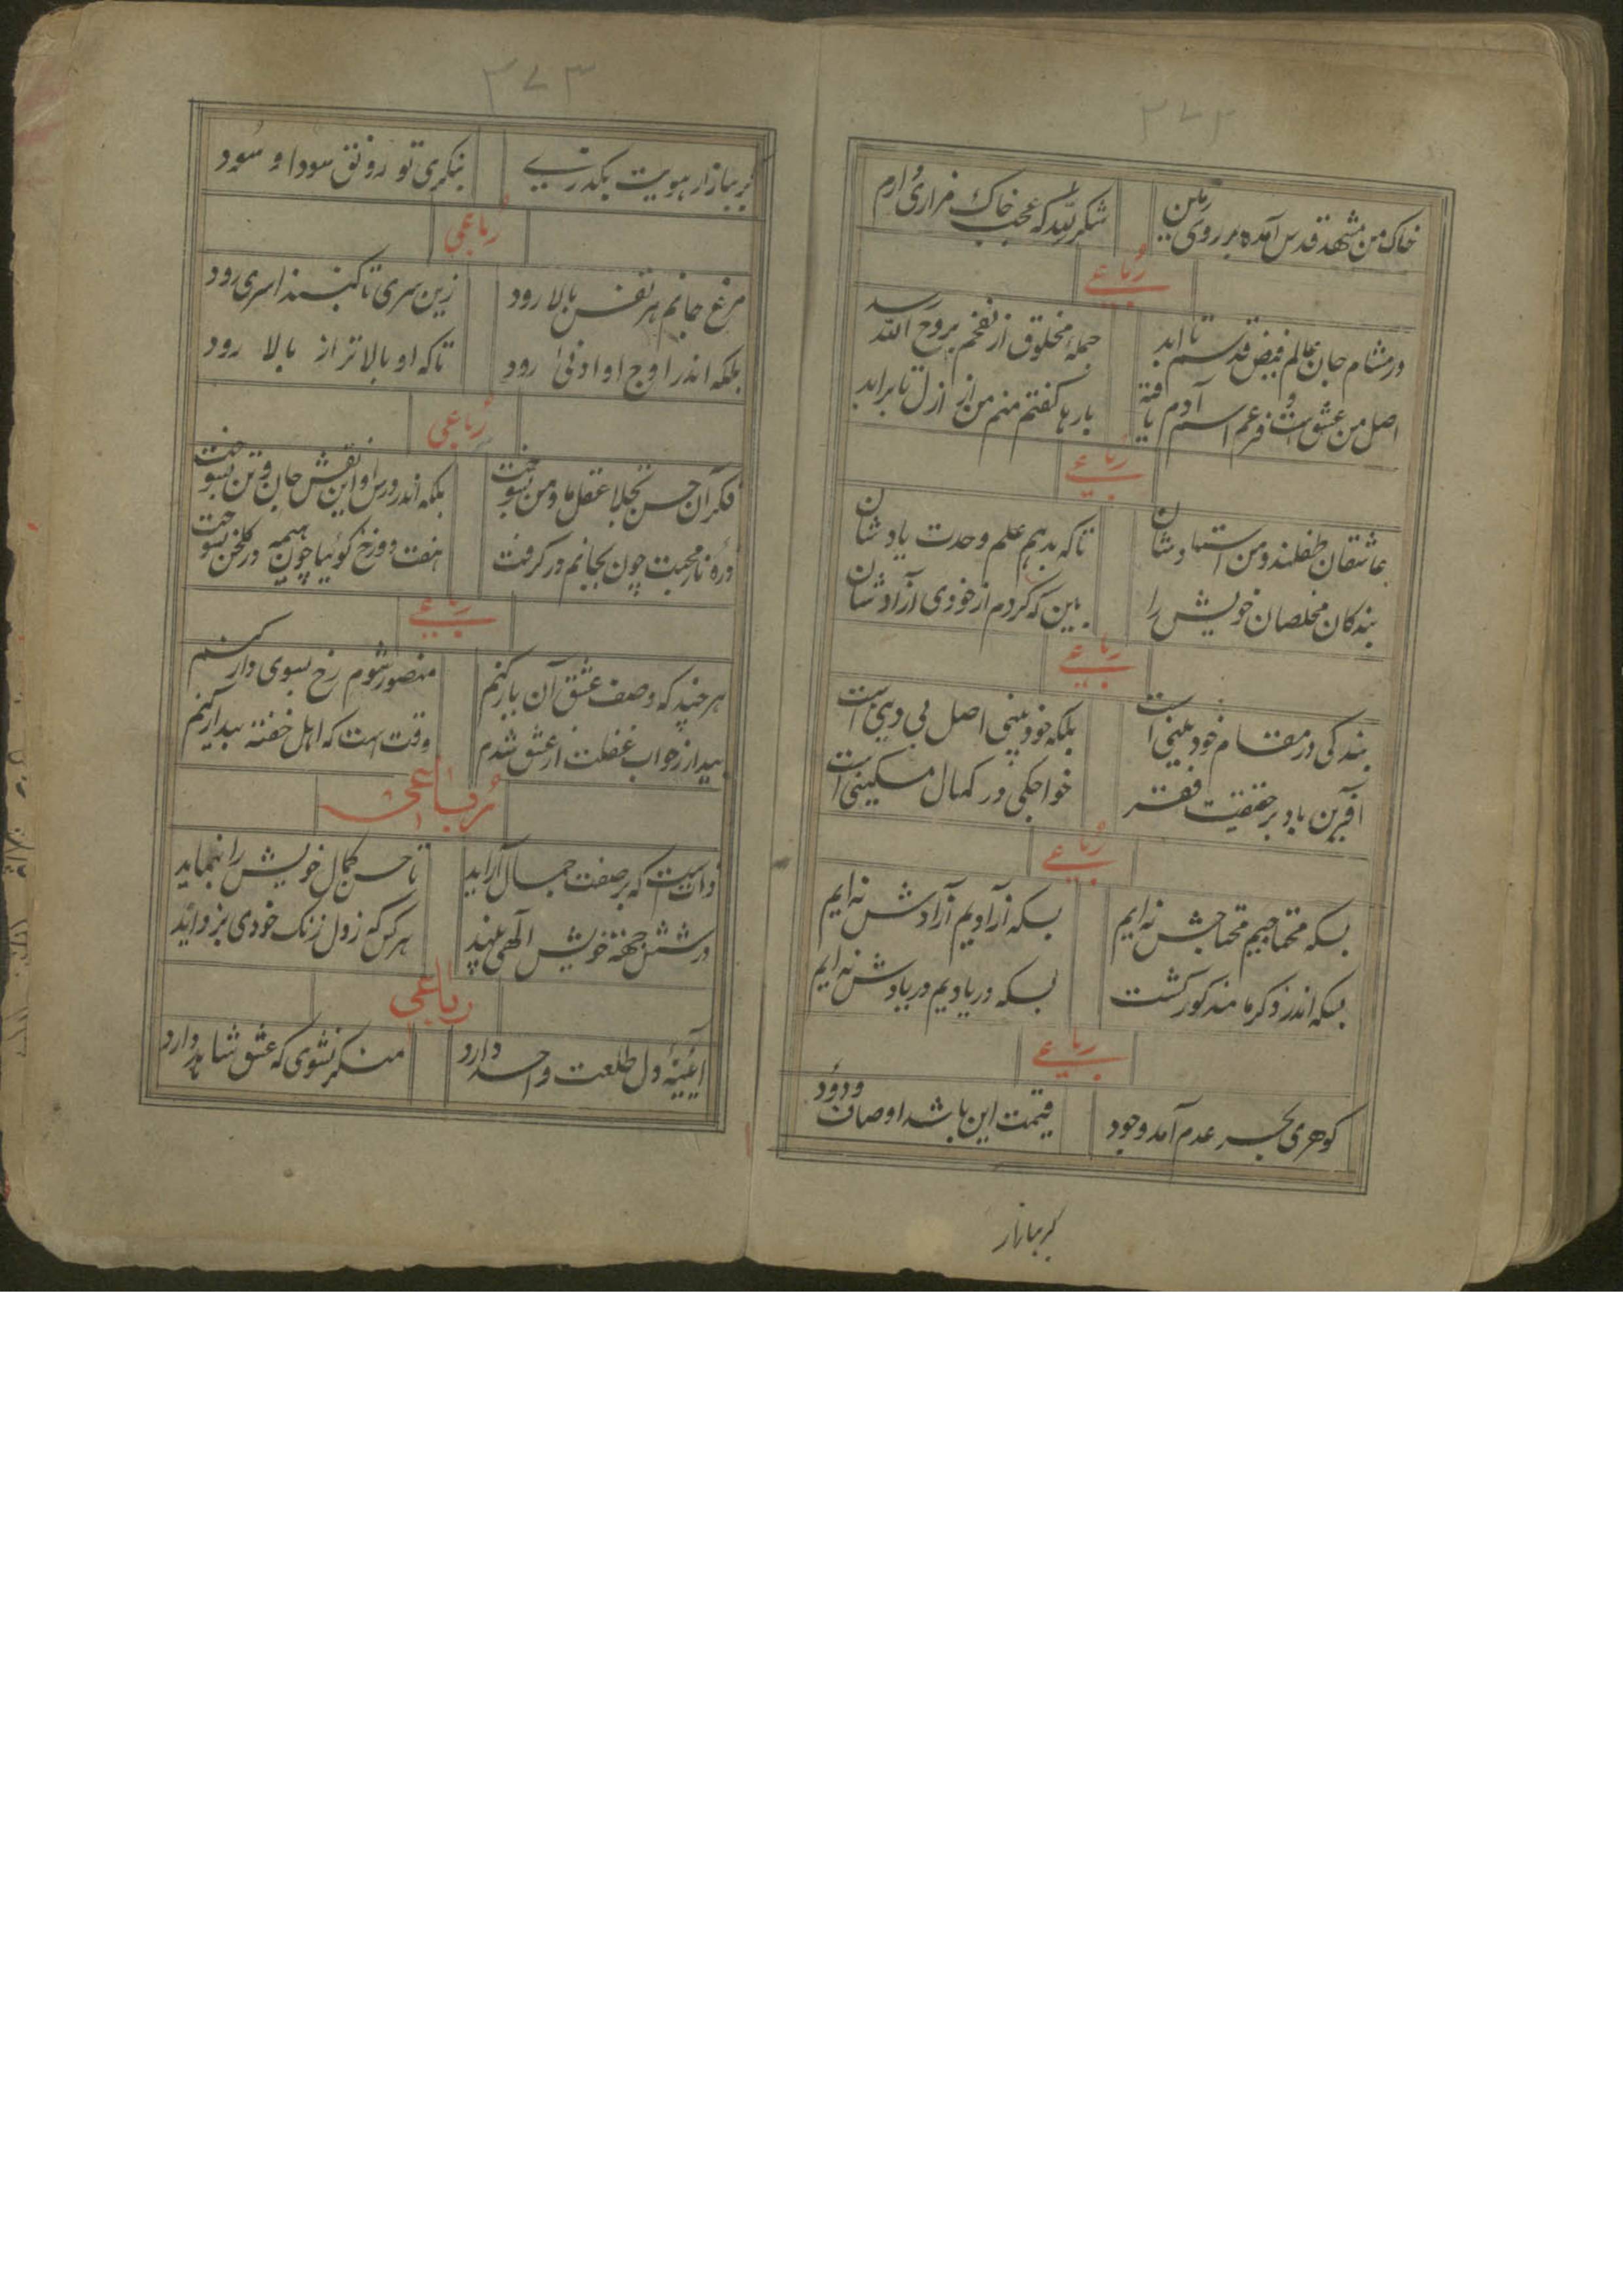 ٢٧٢
خاک من مشهد قدس آمده بر روی زمین شکر لله که عجب خاک مزاری دارم
رباعی
در مشام جان عالم فیض قدسم تا ابد جملهٔ مخلوق از نفخم بروح الله رسد
اصل من عشق است و فرعم اسم آدم یافته بارها گفتم منم من از ازل تا بر ابد
رباعی
عاشقان طفلند و من استاد شان تا که بدهم علم وحدت یاد شان
بندکان مخلصان خویش را بین که کردم از خودی آزاد شان
رباعی
بندکی در مقام خود بینی است بلکه خود بینی اصل بی دینی است
آفرین باد بر حقیقت فقر خواجکی در کمال مسکینی است
رباعی
بسکه محتاجیم محتاجش نه ایم بسکه آزادیم آزادش نه ایم
بسکه اندر ذکر ما مذکور کشت بسکه در یادیم در یادش نه ایم
رباعی
کوهری بحر عدم آمد وجود قیمت این باشد اوصاف ودود
کر ببازار
٣٧٣
کر ببازار هویت بکذری بنکری تو رونق سودا و سود
رباعی
مرغ جانم هر نفس بالا رود زین سری تا کنبد اسری رود
بلکه اندر اوج او ادنی رود تا که او بالاتر از بالا رود
رباعی
فکر آن حسن تجلا عقل ما و من بسوخت بلکه اندر درس او این نقش جان و تن بسوخت
ذره نار محبت چون بجانم در کرفت هفت دوزخ کوئیا چون هیمه در کلخن بسوخت
رباعی
هر چند که وصف عشق آن یار کنم منصور شوم رخ بسوی دار کنم
بیدار ز خواب غفلت از عشق شدم وقت است که اهل خفته بیدار کنم
رباعی
ذات است که بر صفت جمال آراید تا حسن کمال خویش را بنماید
در شش جهة خویش الهی بیند هر کس که ز دل زنک خودی بزداید
رباعی
آیینهٔ دل طلعت واحد دارد منکر نشوی که عشق شاهد دارد